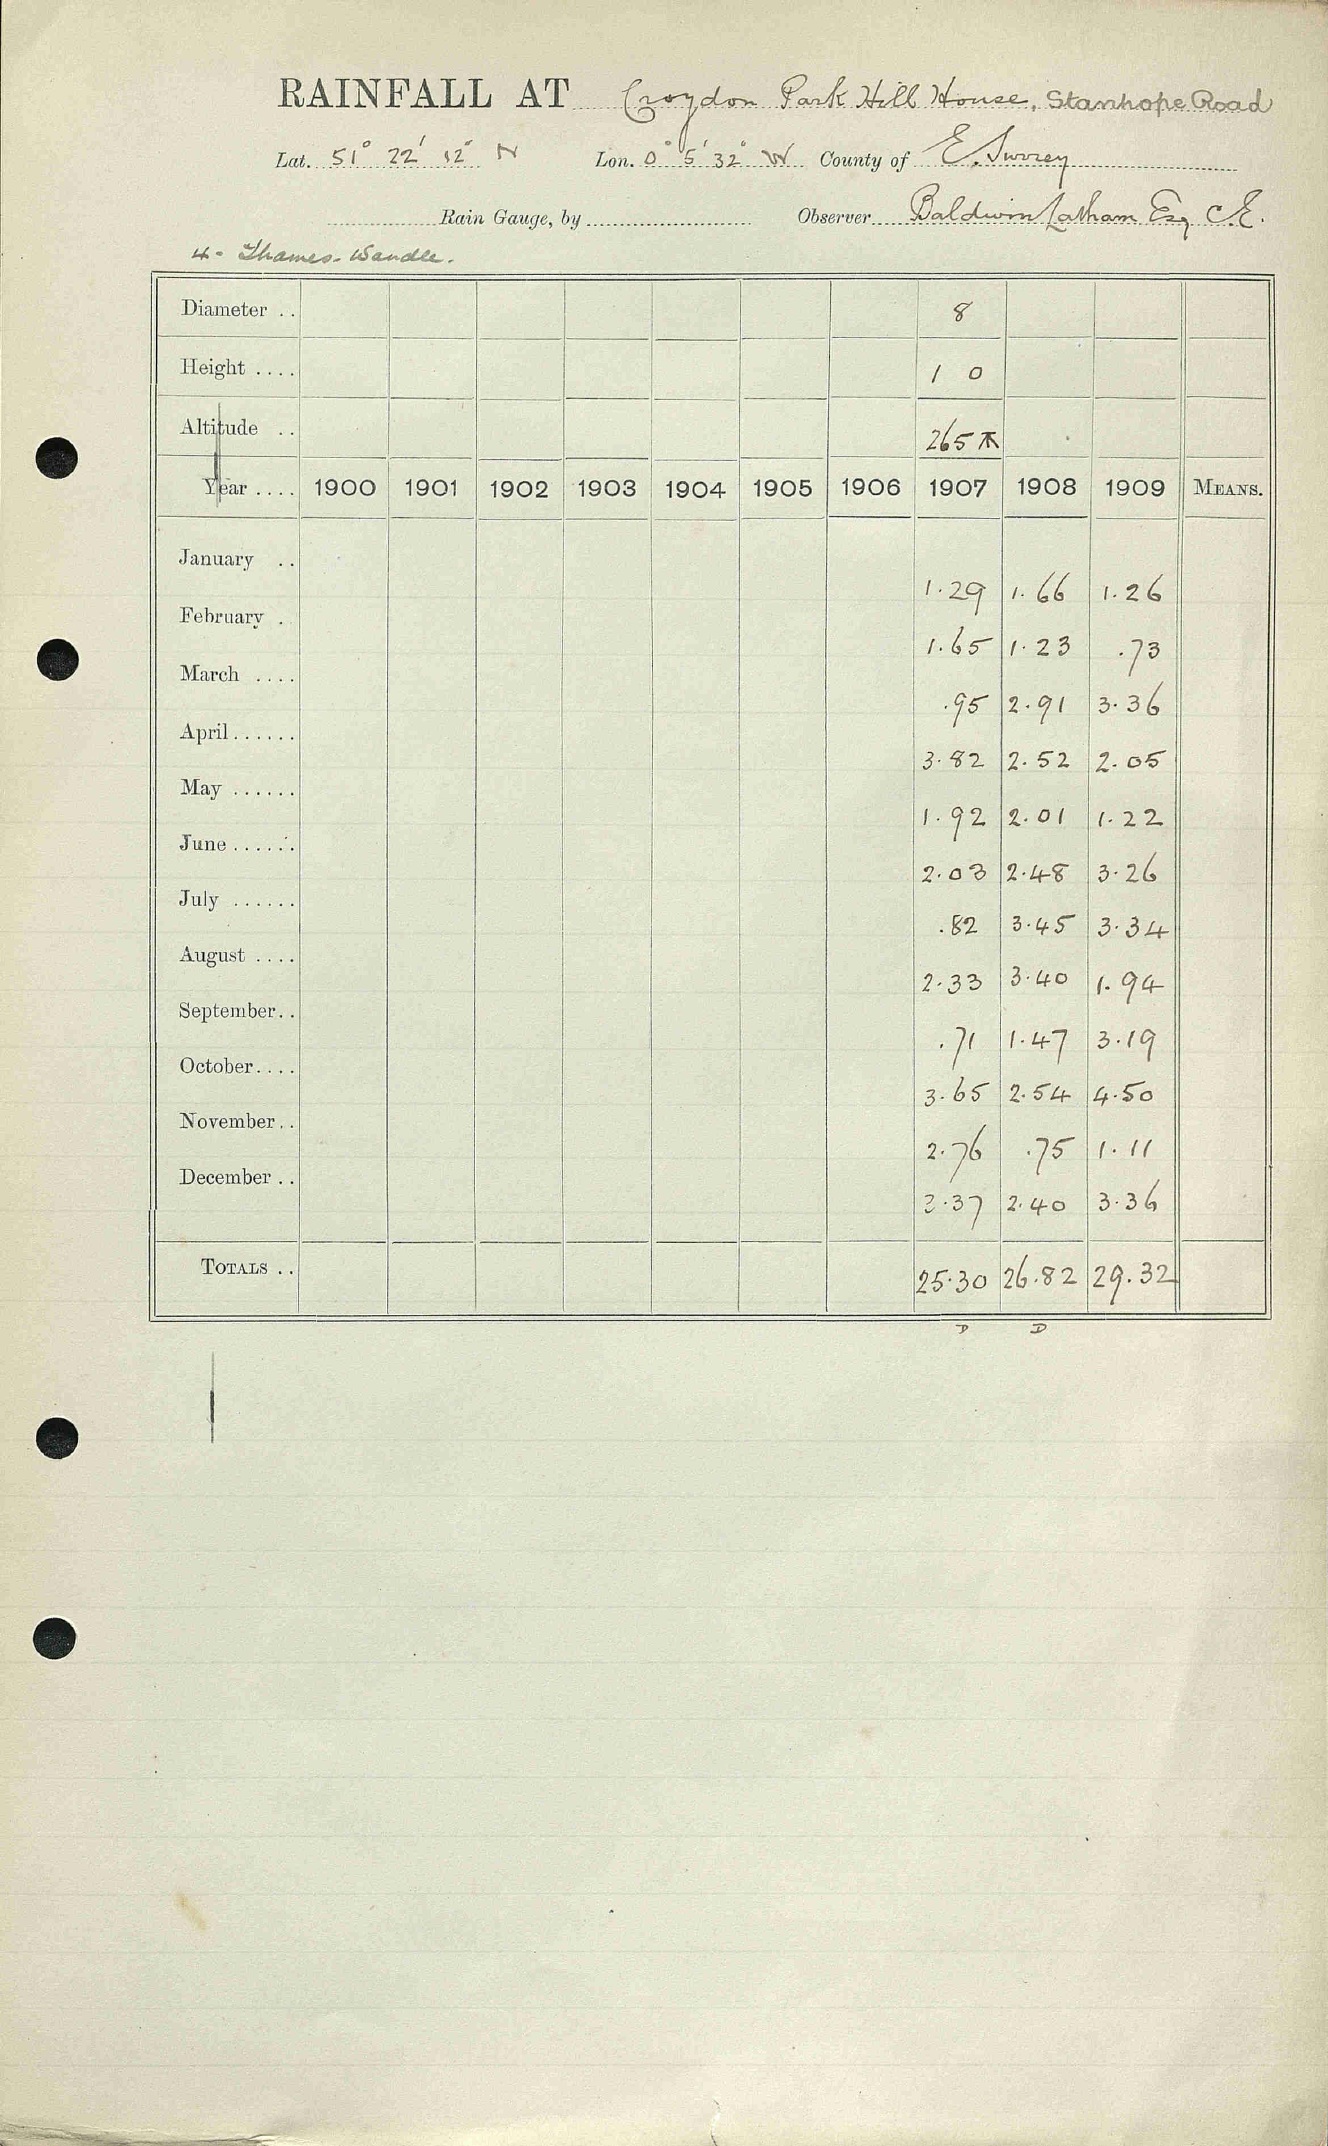 RAINFALL AT Croydon Park Hill House, Stanhope Road
Lat. 51° 22' 12" N Lon. 0° 5' 32" W County of E. Surrey
Rain Gauge, by Observer Baldwin Latham Esq C.E.
4 - Thames - Wandle.
Diameter .. 8
Height .... 1 0
Altitude .. 265
Year .... 1900 1901 1902 1903 1904 1905 1906 1907 1908 1909 MEANS.
January .. 1.29 1.66 1.26
February . 1.65 1.23 .73
March .... .95 2.91 3.36
April ...... 3.82 2.52 2.05
May ...... 1.92 2.01 1.22
June ...... 2.03 2.48 3.26
July ...... .82 3.45 3.34
August .... 2.33 3.40 1.94
September.. .71 1.47 3.19
October.... 3.65 2.54 4.50
November.. 2.76 .75 1.11
December .. 3.37 2.40 3.36
TOTALS .. 25.30 26.82 29.32
D D